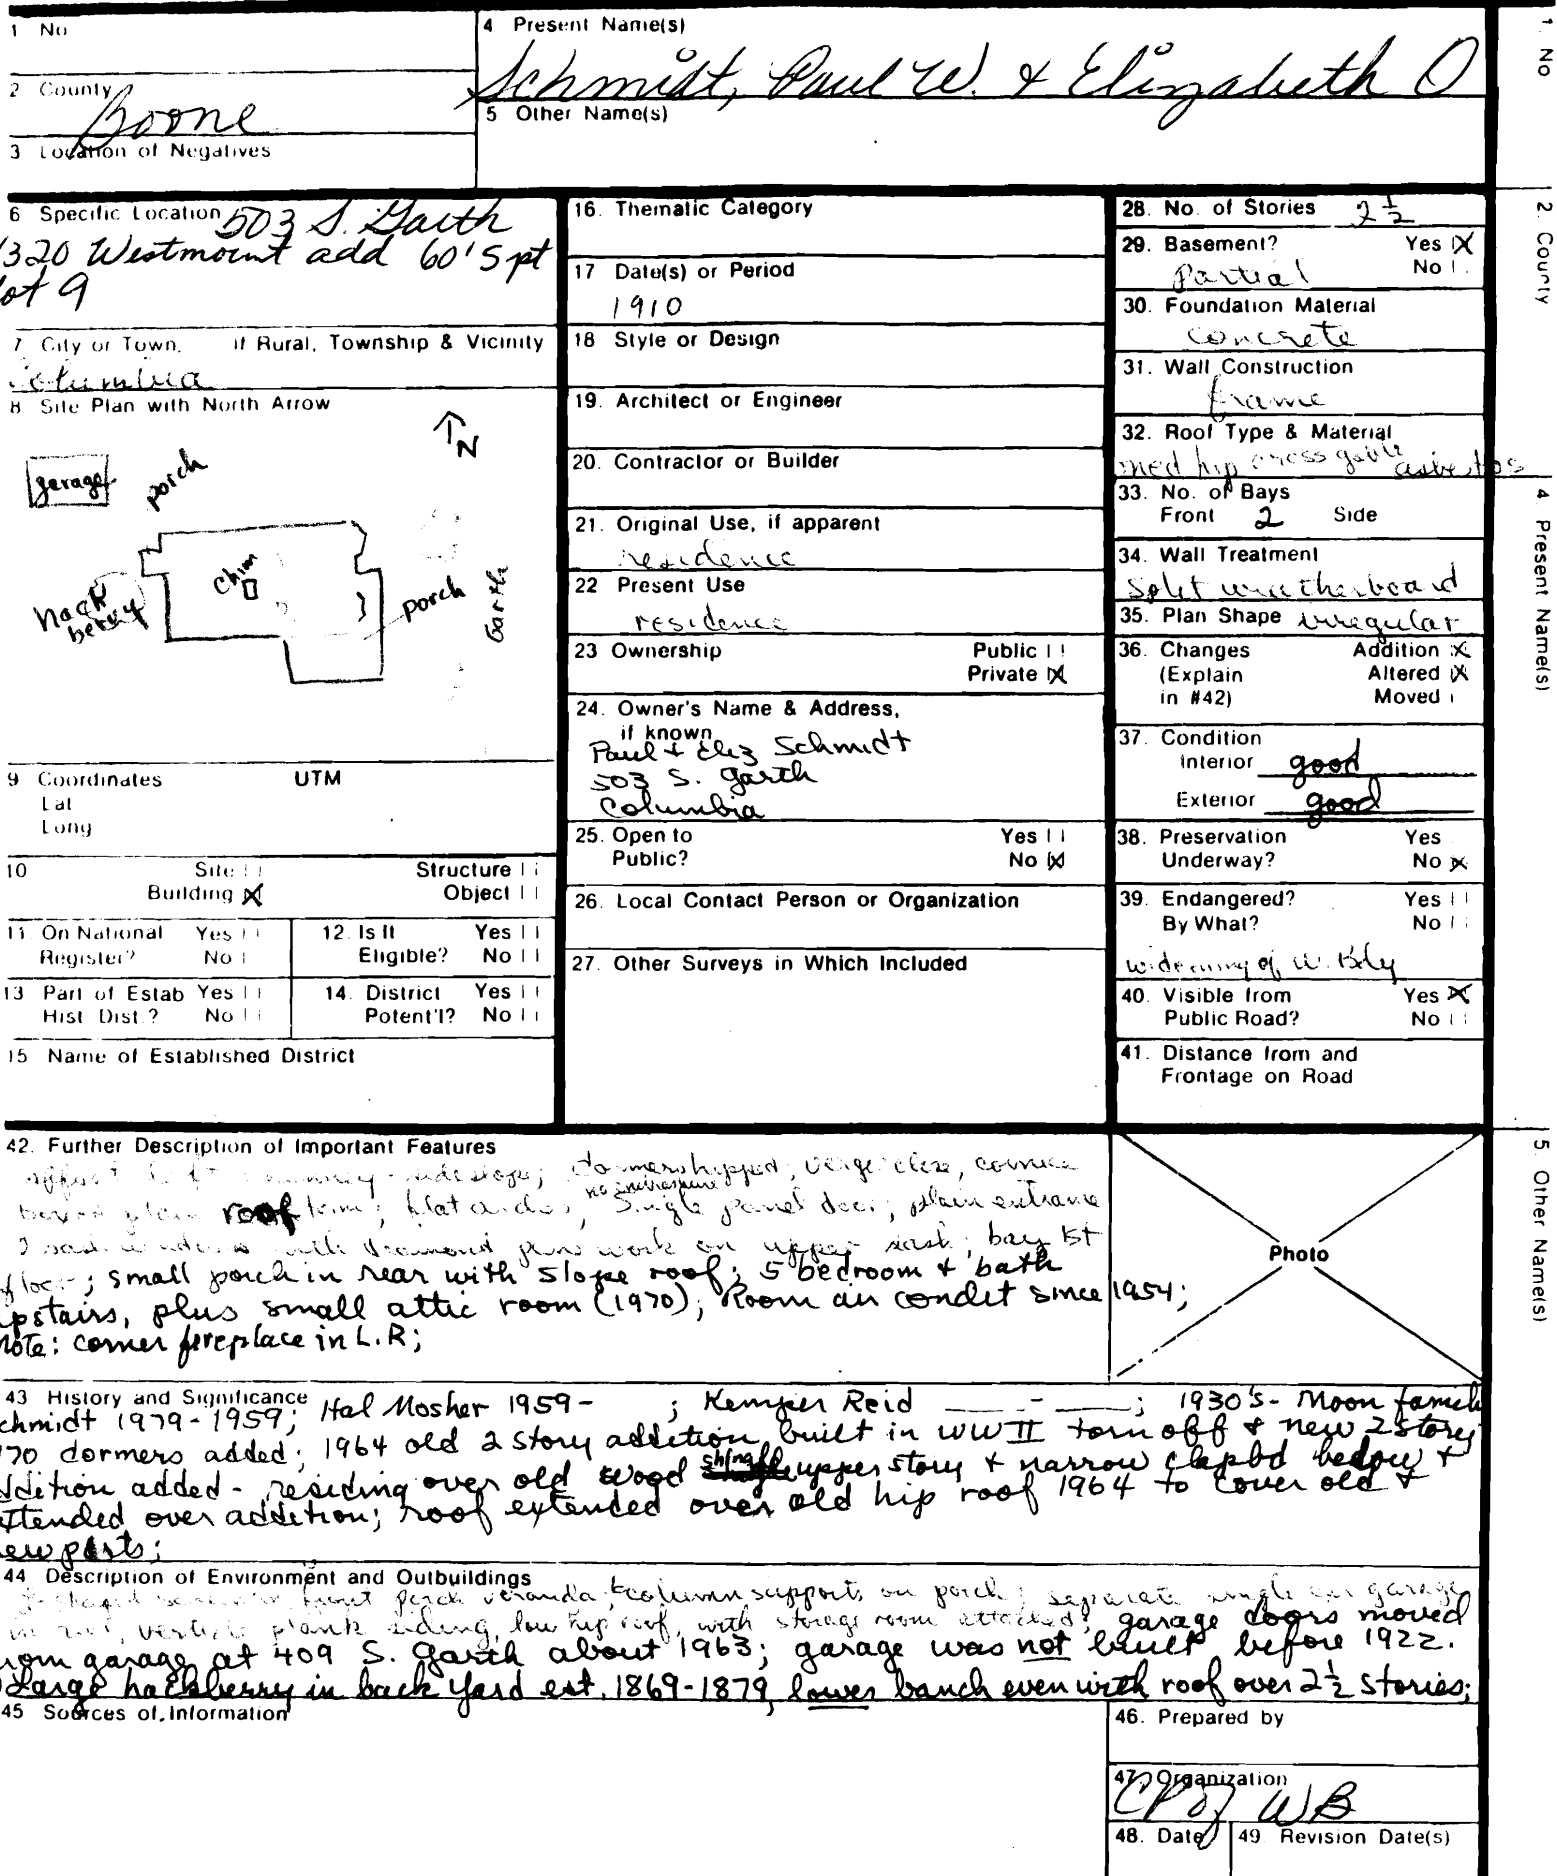 1 No
4 Present Name(s)
Schmidt, Paul W. & Elizabeth O
2 County
Boone
5 Other Name(s)
3 Location of Negatives
6 Specific Location 503 S. Garth
1320 Westmount add 60' S pt
lot 9
7 City or Town, if Rural, Township & Vicinity
Columbia
8 Site Plan with North Arrow
N
garage
porch
chim
hack
berry
porch
Garth
9 Coordinates UTM
Lat
Long
10 Site Structure
Building X Object
11 On National Register? Yes No
12. Is It Eligible? Yes No
13 Part of Estab Hist Dist.? Yes No
14. District Potent'l? Yes No
15 Name of Established District
16. Thematic Category
17 Date(s) or Period
1910
18 Style or Design
19. Architect or Engineer
20. Contractor or Builder
21. Original Use, if apparent
residence
22 Present Use
residence
23 Ownership Public
Private X
24. Owner's Name & Address,
if known
Paul + Eliz Schmidt
503 S. Garth
Columbia
25. Open to Yes
Public? No X
26. Local Contact Person or Organization
27. Other Surveys in Which Included
28. No. of Stories 2 1/2
29. Basement? Yes X
Partial No
30. Foundation Material
concrete
31. Wall Construction
frame
32. Roof Type & Material
med hip cross gable asbestos
33. No. of Bays
Front 2 Side
34. Wall Treatment
Split weatherboard
35. Plan Shape irregular
36. Changes Addition X
(Explain Altered X
in #42) Moved
37. Condition
Interior good
Exterior good
38. Preservation Yes
Underway? No X
39. Endangered? Yes
By What? No
widening of W. Bdy
40. Visible from Yes X
Public Road? No
41. Distance from and
Frontage on Road
42. Further Description of Important Features
slope; dormers hipped, verge close, cornice
plain roof trim; flat arches, no entrance single panel door; plain entrance
with diamond work on upper sash; bay 1st
floor; small porch in rear with slope roof; 5 bedroom + bath
upstairs, plus small attic room (1970); Room air condit since 1954;
note: corner fireplace in L.R;
Photo
43 History and Significance Hal Mosher 1959- ; Kemper Reid ___ - ___; 1930's- Moon family
Schmidt 1979-1959;
1970 dormers added; 1964 old 2 story addition built in WW II torn off & new 2 story
addition added - residing over old wood shingle upper story + narrow clapbd below +
extended over addition; roof extended over old hip roof 1964 to cover old +
new parts;
44 Description of Environment and Outbuildings
front porch veranda, column supports on porch; separate single car garage
vertical plank siding, low hip roof, with storage room attached; garage doors moved
from garage at 409 S. Garth about 1963; garage was not built before 1922.
Large hackberry in back yard est. 1869-1879, lower banch even with roof over 2 1/2 stories;
45 Sources of Information
46. Prepared by
47. Organization
48. Date
49. Revision Date(s)
1. No
2. County
4. Present Name(s)
5. Other Name(s)